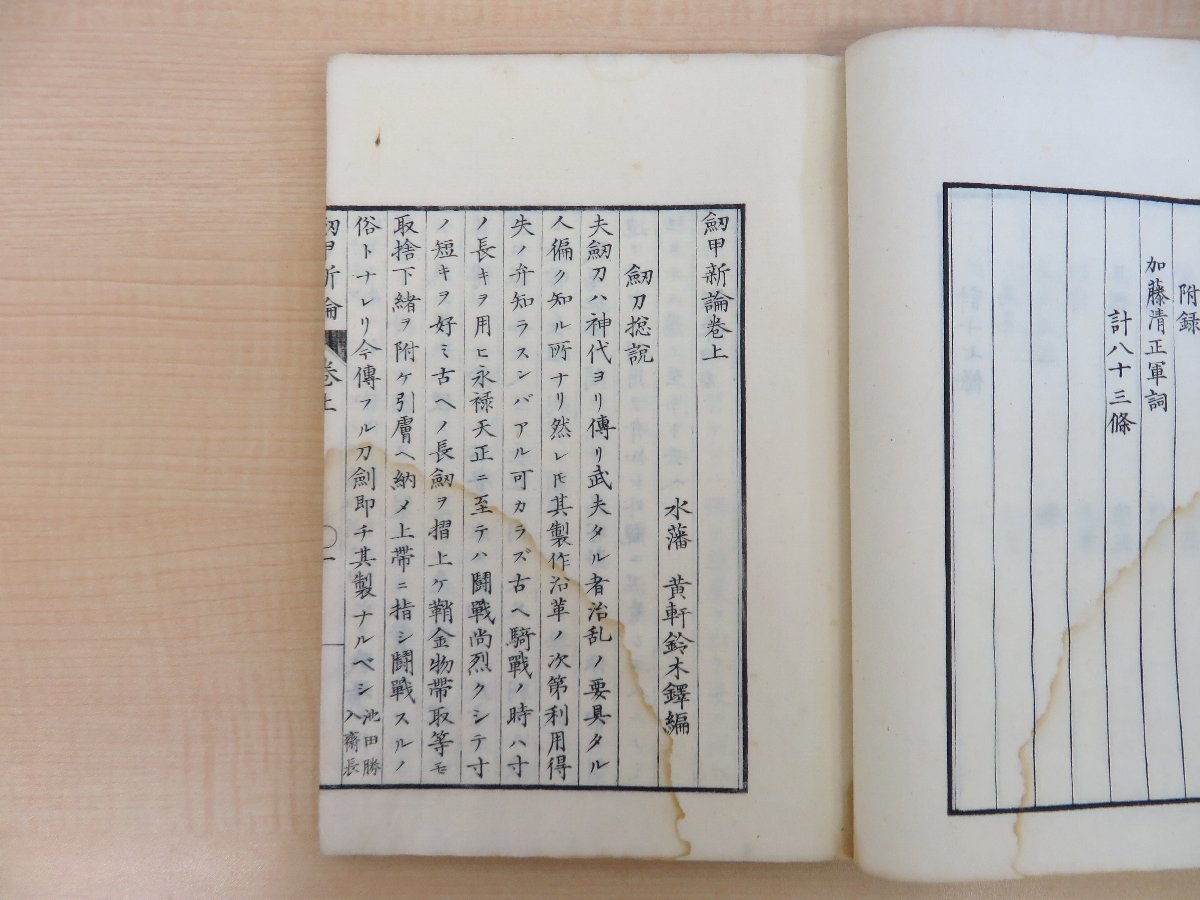 附録
加藤清正軍詞
計八十三條
劔甲新論卷上
水藩 黄軒鈴木鐸編
劔刀捴說
夫劔刀ハ神代ヨリ傳リ武夫タル者治乱ノ要具タル
人徧ク知ル所ナリ然レ𪜈其製作沿革ノ次第利用得
失ノ弁知ラスンバアル可カラズ古ヘ騎戰ノ時ハ寸
ノ長キヲ用ヒ永禄天正ニ至テハ鬪戰尚烈クシテ寸
ノ短キヲ好ミ古ヘノ長劔ヲ摺上ケ鞘金物帶取等モ
取捨下緒ヲ附ケ引膚ヘ納メ上帶ニ指シ鬪戰スルノ
俗トナレリ今傳フル刀劍即チ其製ナルベシ池田勝
入齋長
劔甲新論 卷上 〇一